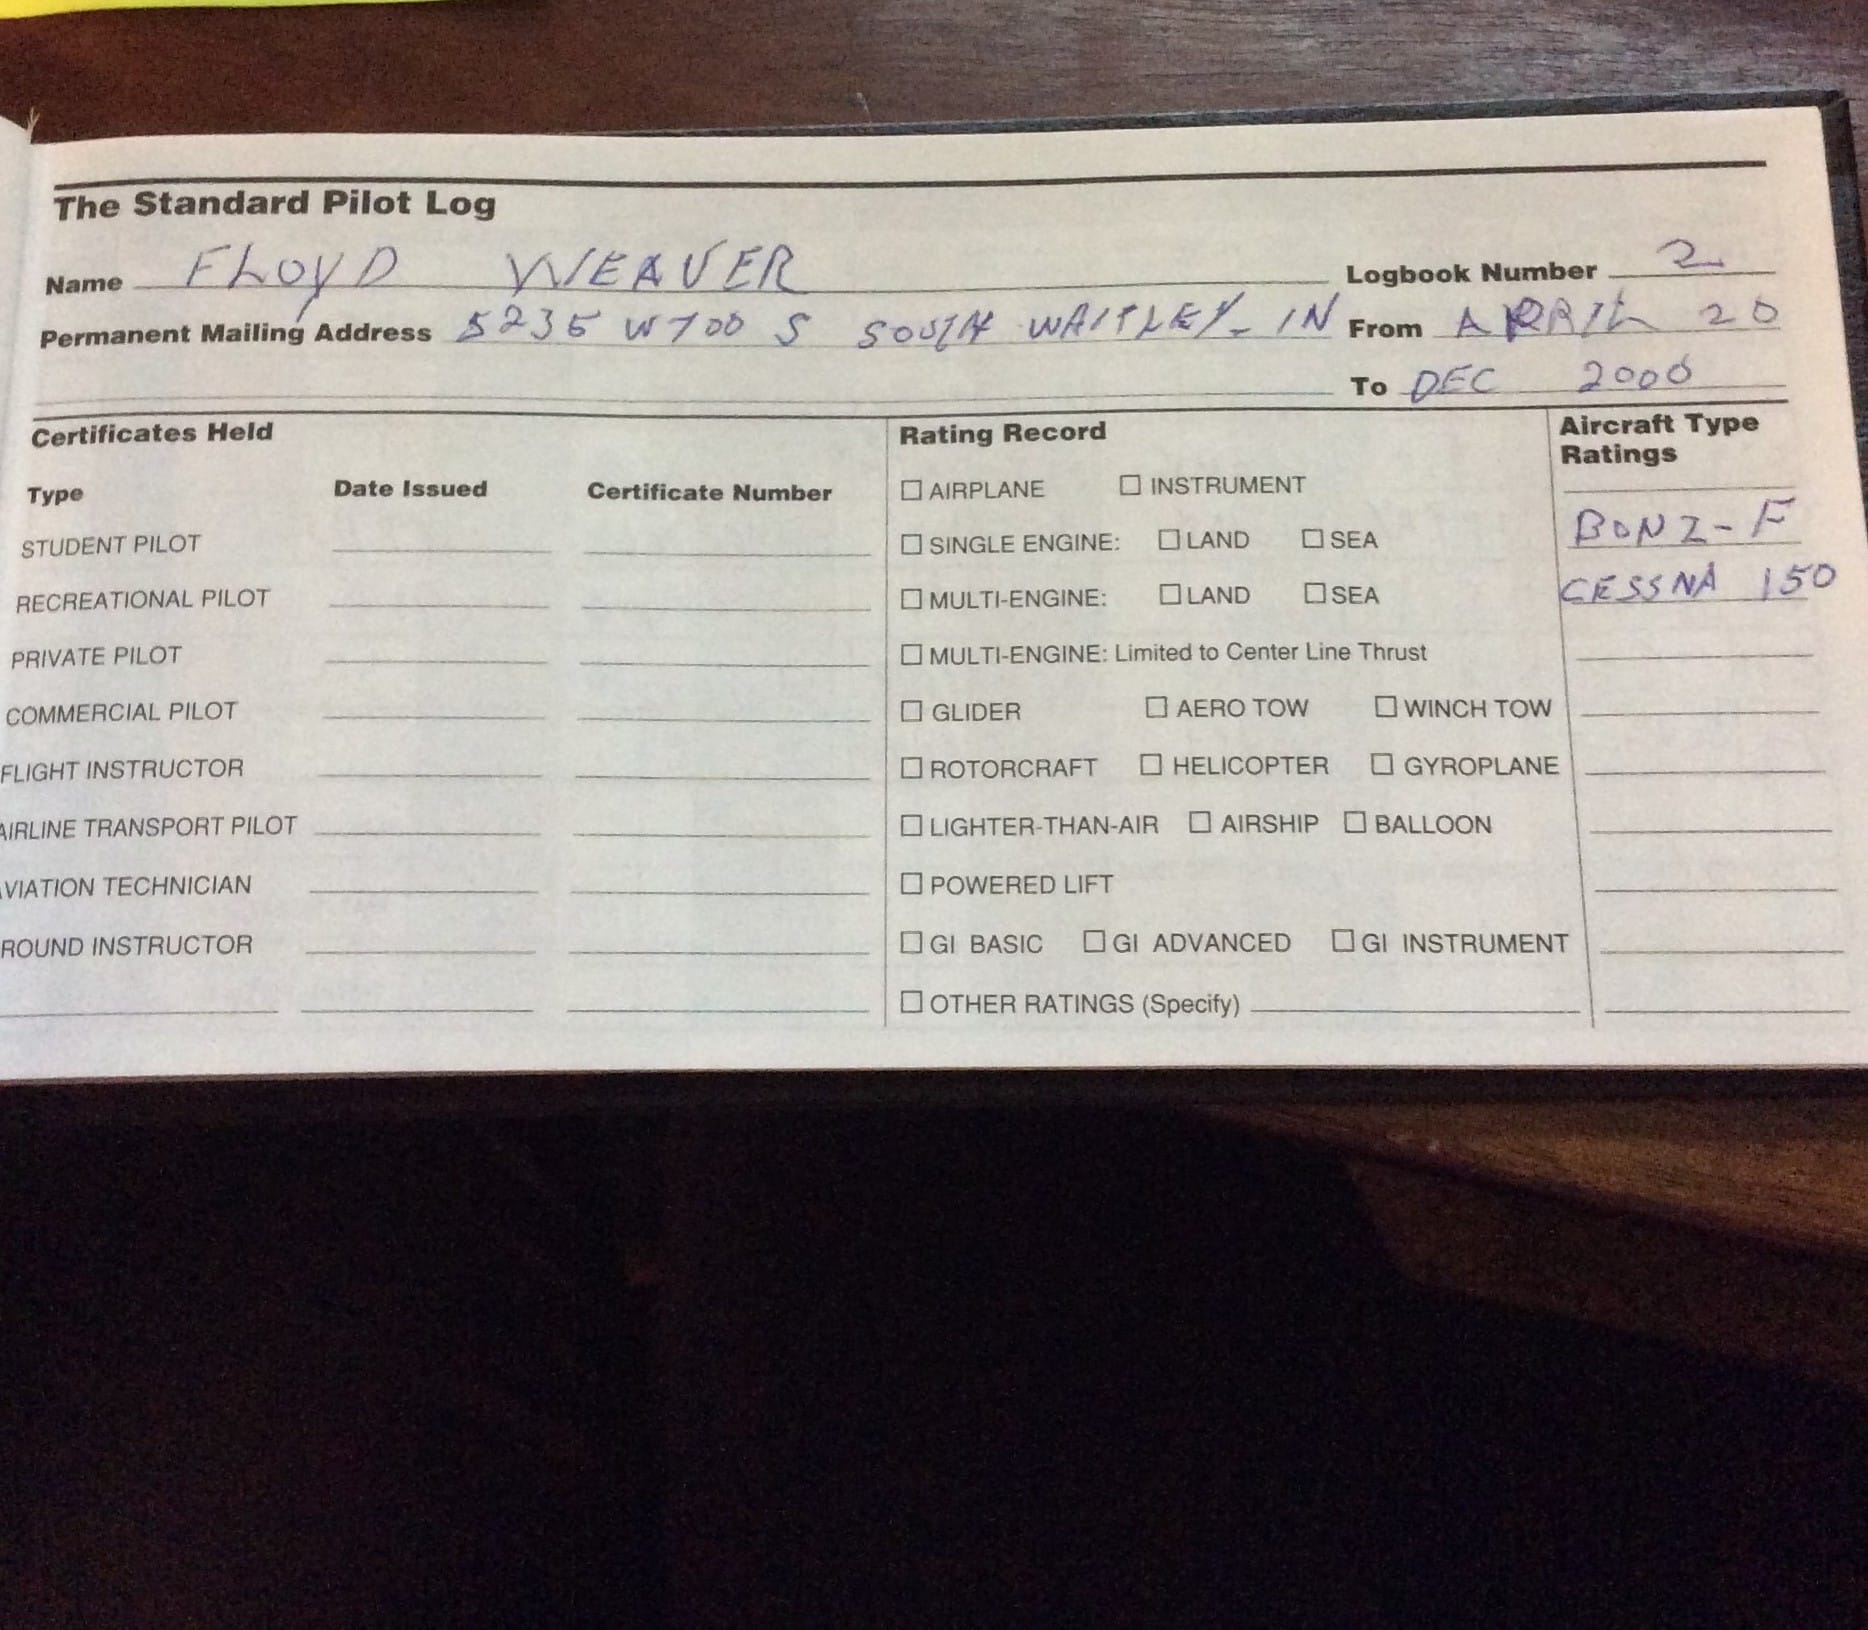 The Standard Pilot Log
Name FLOYD WEAVER Logbook Number 2
Permanent Mailing Address 5235 W 700 S SOUTH WHITLEY IN From APRIL 20
To DEC 2000
Certificates Held Rating Record Aircraft Type Ratings
Type Date Issued Certificate Number AIRPLANE INSTRUMENT
STUDENT PILOT SINGLE ENGINE: LAND SEA BONZ-F
RECREATIONAL PILOT MULTI-ENGINE: LAND SEA CESSNA 150
PRIVATE PILOT MULTI-ENGINE: Limited to Center Line Thrust
COMMERCIAL PILOT GLIDER AERO TOW WINCH TOW
FLIGHT INSTRUCTOR ROTORCRAFT HELICOPTER GYROPLANE
AIRLINE TRANSPORT PILOT LIGHTER-THAN-AIR AIRSHIP BALLOON
VIATION TECHNICIAN POWERED LIFT
ROUND INSTRUCTOR GI BASIC GI ADVANCED GI INSTRUMENT
OTHER RATINGS (Specify)